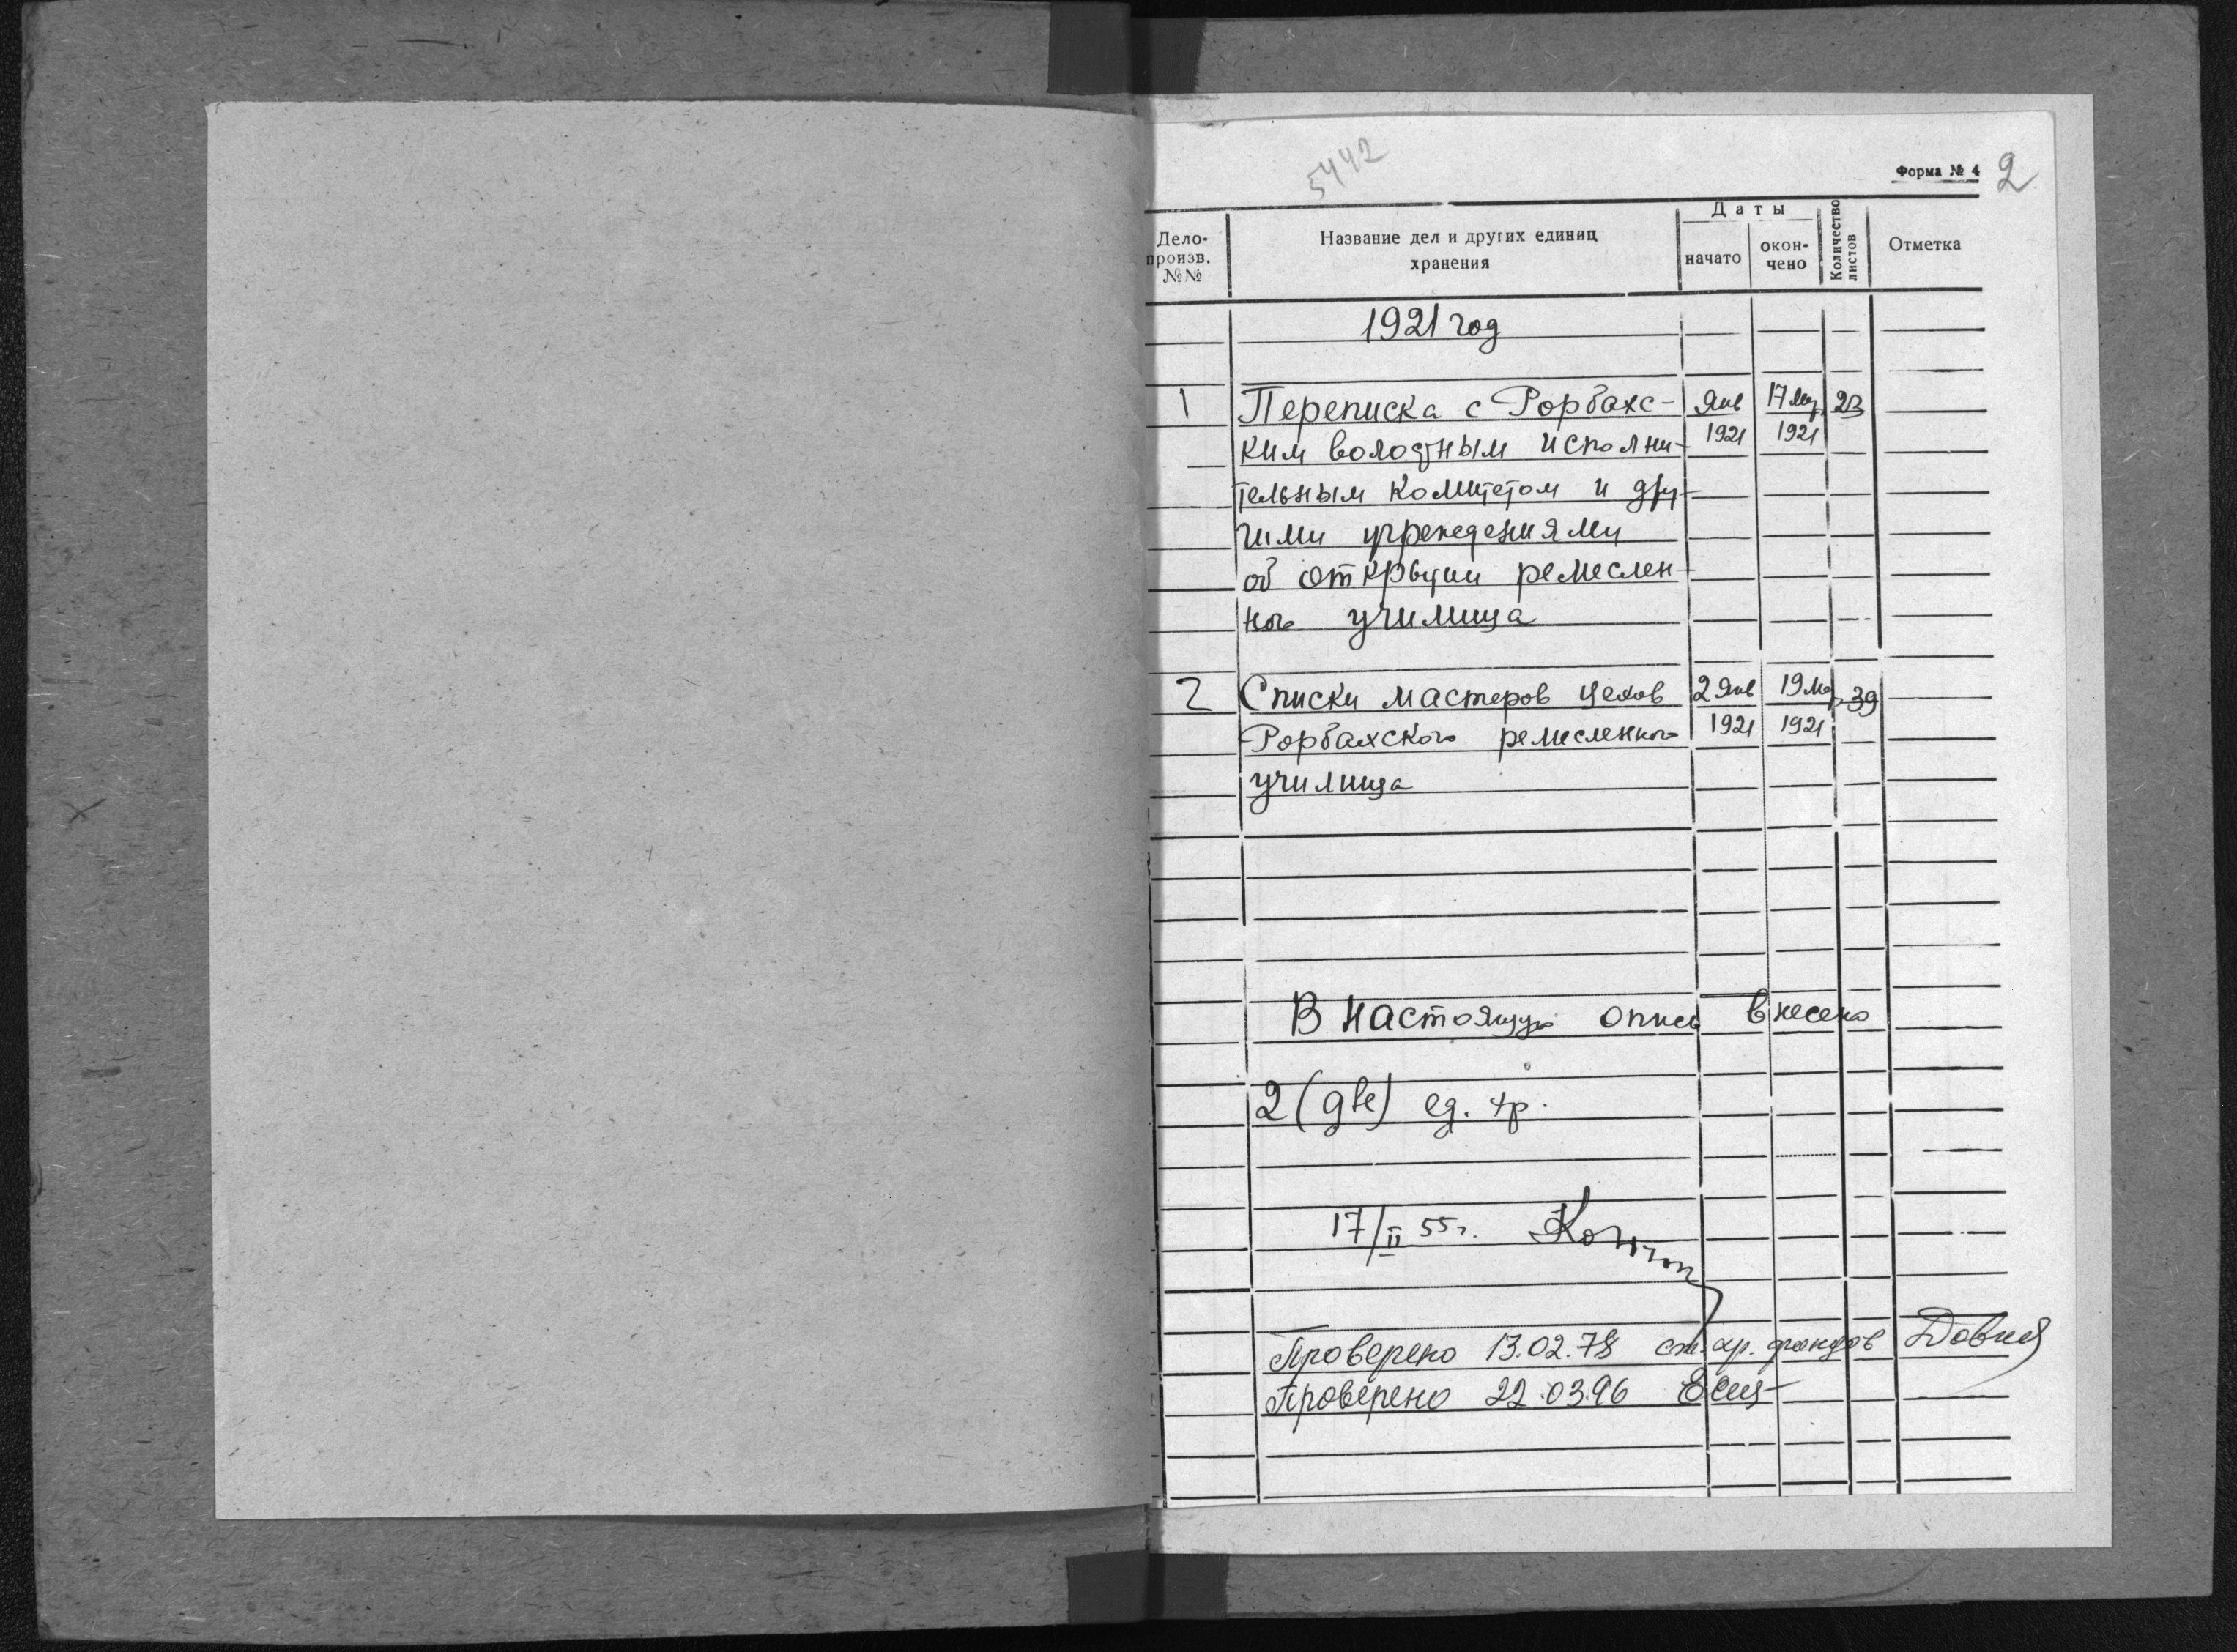 5442
Форма № 4 2
Дело-произв. №№ Название дел и других единиц хранения Даты начато окон-чено Количество листов Отметка
1921 год
1 Переписка с Рорбахс- Янв 17 Мар 23
ким волостным исполни- 1921 1921
тельным комитетом и дру-
гими учреждениями
об открытии ремеслен-
ного училища
2 Списки мастеров цехов 2 Янв 19 Мар 39
Рорбахского ремесленного 1921 1921
училища
В настоящую опись внесено
2 (две) ед. хр.
17/II 55 г.
Проверено 13.02.78 ст. хр. фондов
Проверено 22.03.96